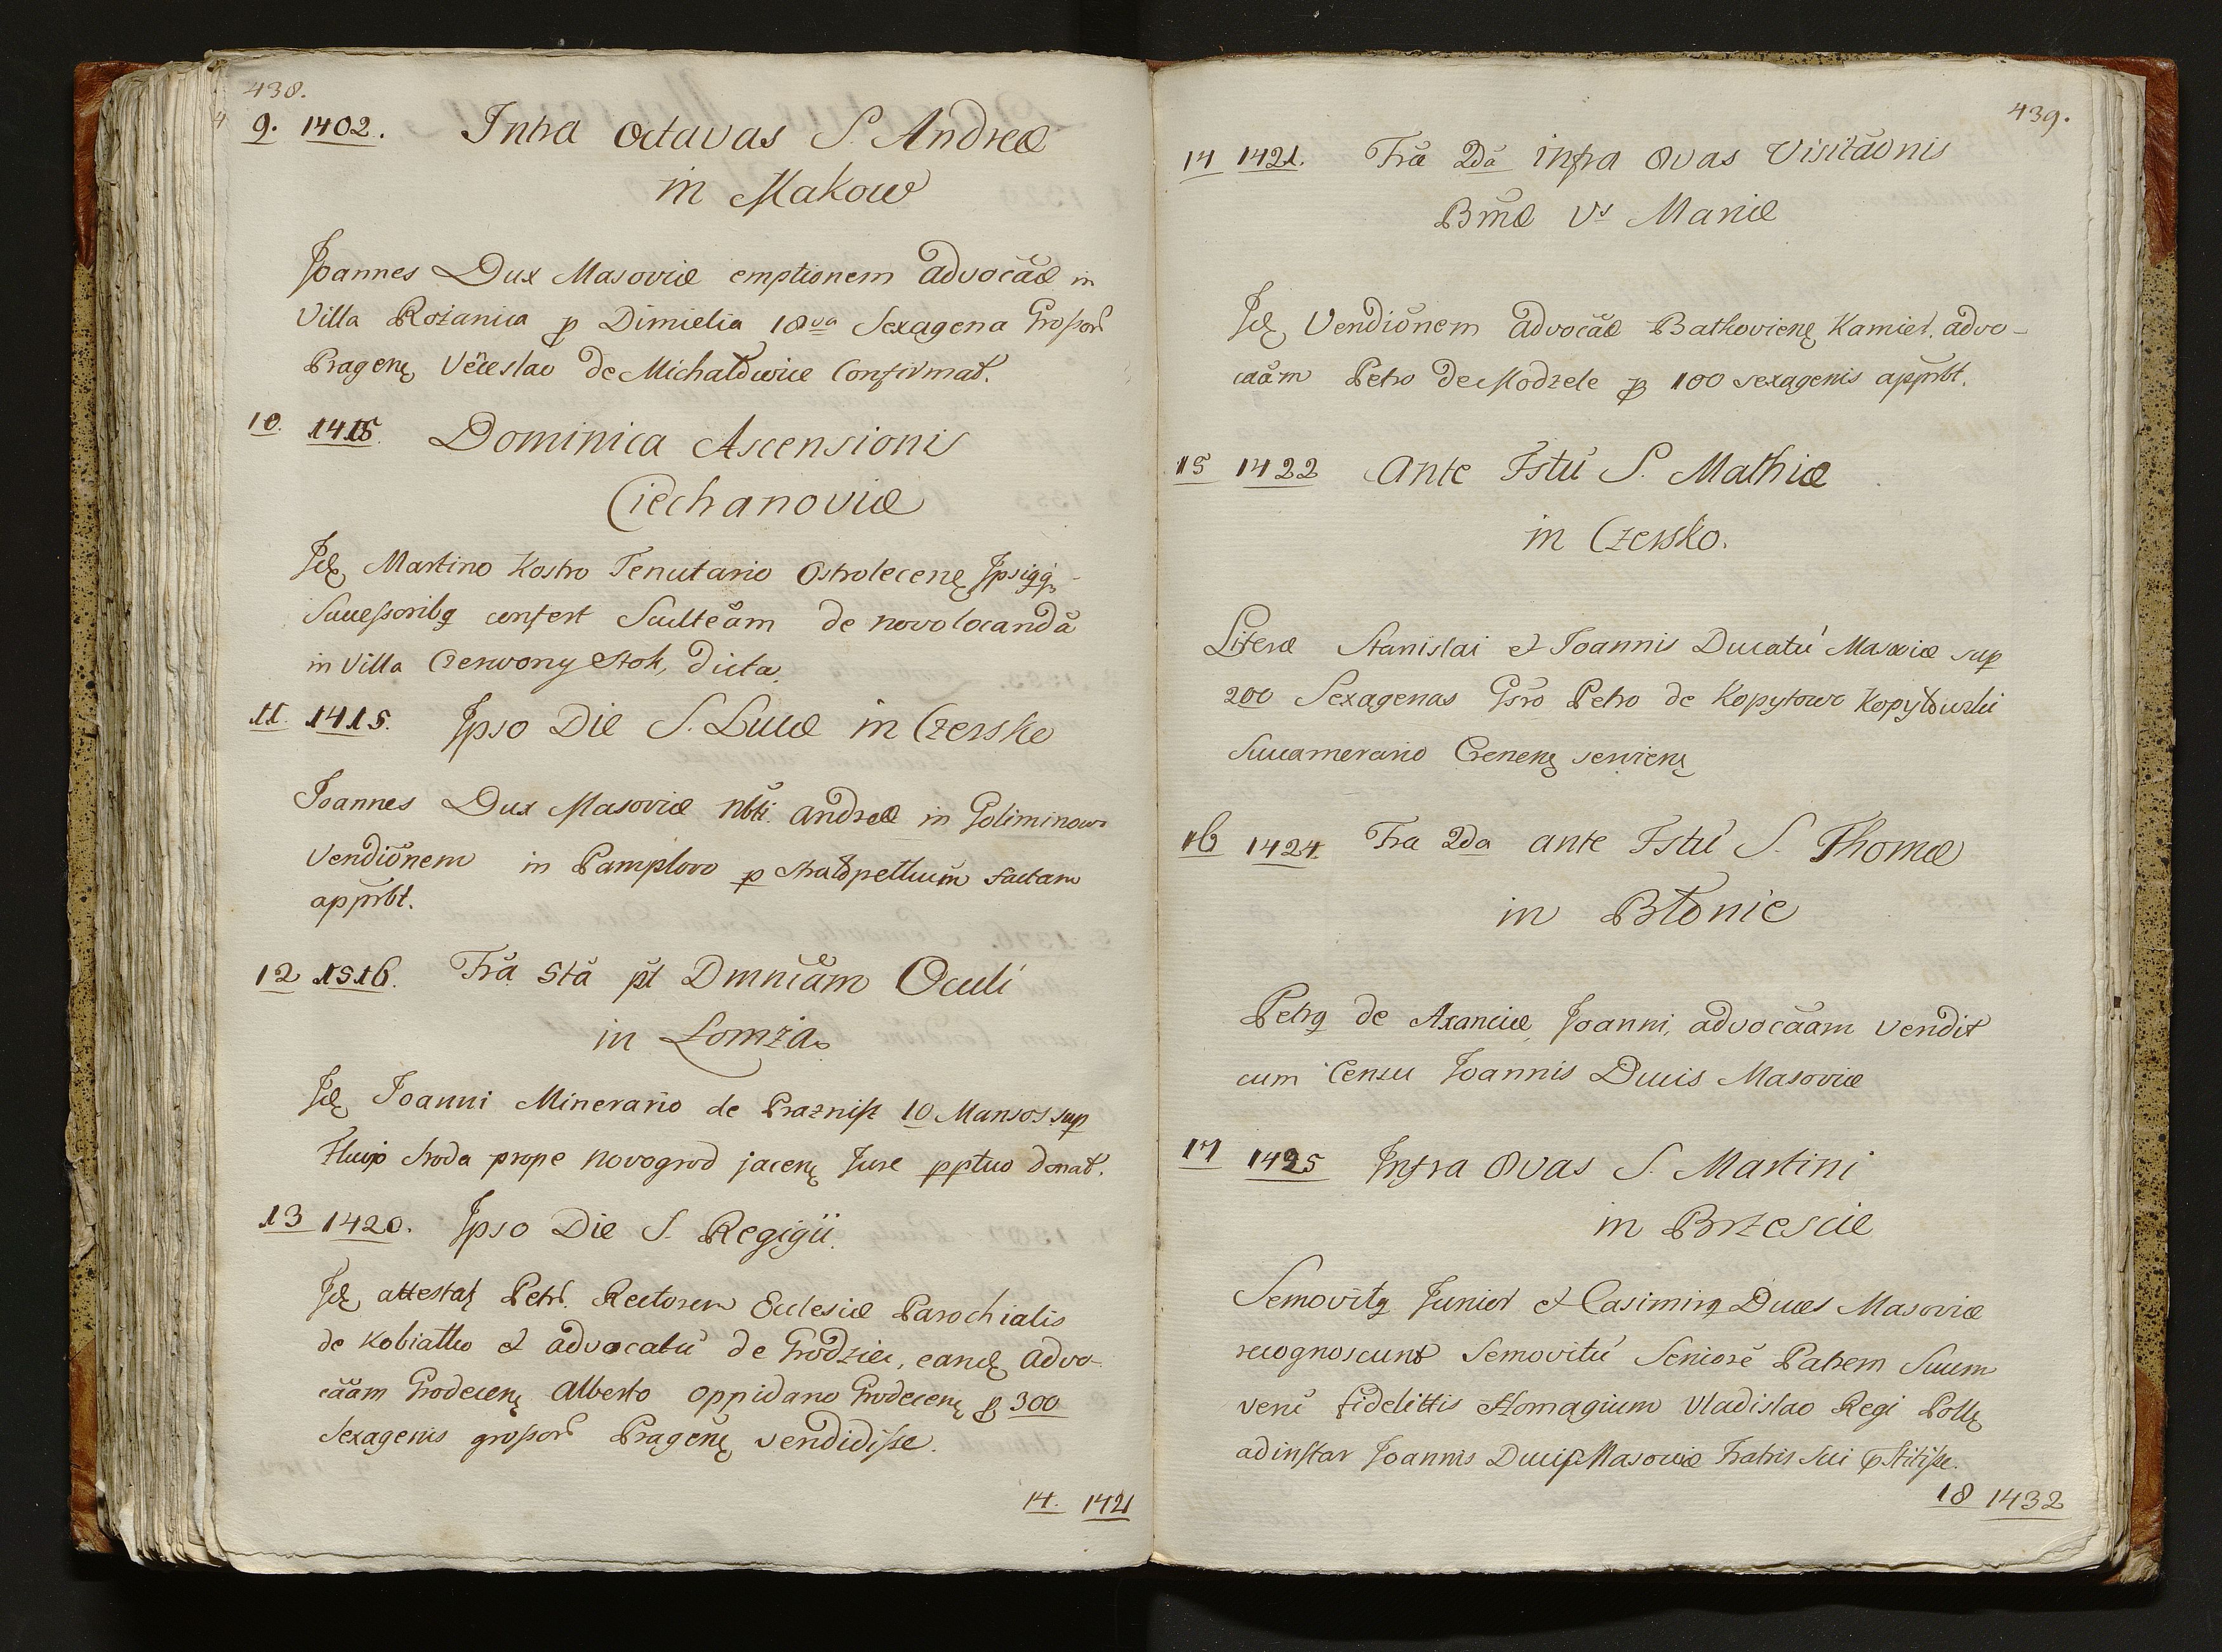 438.
9. 1402. Intra Octavas S. Andreæ
in Makow
Joannes Dux Masoviæ emptionem advocãæ in
Villa Rożanica p Dimielia 18va Sexagena Großor
Pragenę Vẽceslao de Michałowice Confirmat.
10. 1415. Dominica Ascensionis
Ciechanoviæ
Idę Martino Kostro Tenutario Ostrolecenę Ipsiqq
Sucessoribq confert Scultẽam de novo locandã
in Villa Czerwony Stok, dicta.
11. 1415. Ipso Die S. Lucæ in Czersko
Joannes Dux Masoviæ Nbli. Andreæ in Goliminow
Vendiõnem in Pamplovo p factam
apprbt.
12 1516. Frã 5tã pt Dmnicãm Oculi
in Lomza
Idę Joanni Minerario de Praznisz 10 Mansos sup
Fluvio Sroda prope Novogrod jacenę Jure pptuo donat.
13 1420. Ipso Die S. Regigii.
Idę attestaţ Petr. Rectorem Ecclesiæ Parochialis
de Kobiałko et advocatũ de Grodziec, eandę Advo-
cãam Grodecenę Alberto oppidano Grodecenę p 300
Sexagenis großor Pragenę vendidiße.
14. 1421
439.
14 1421. Frã 2dã infra Ovas Visitãonis
Bmæ Vs Mariæ
Idę Vendiõnem Advocãæ Batkovienę Kamień. advo-
cãam Petro de Modzele p 100 sexagenis apprbt.
15 1422 Ante Fstũ S. Mathiæ
in Czersko.
Literæ Stanislai et Joannis Ducatũ Masoviæ sup
200 Sexagenas Gsro Petro de Kopytowo Kopytowski
Succamerario Cenenę servienę
16 1424. Fra 2da ante Fstũ S. Thomæ
in Błonie
Petrq de Axancicæ, Joanni, advocãam vendit
cum Censu Joannis Ducis Masoviæ
17 1425 Infra Ovas S. Martini
in Brzesciæ
Semovitq Junior et Casimirq Duces Masoviæ
recognoscunt Semovitũ Seniorẽ Patrem Suum
veri fidelittis Homagium Vladislao Regi Pollę
adinstar Joannis Ducis Masoviæ Fratris sui pstitiße.
18 1432